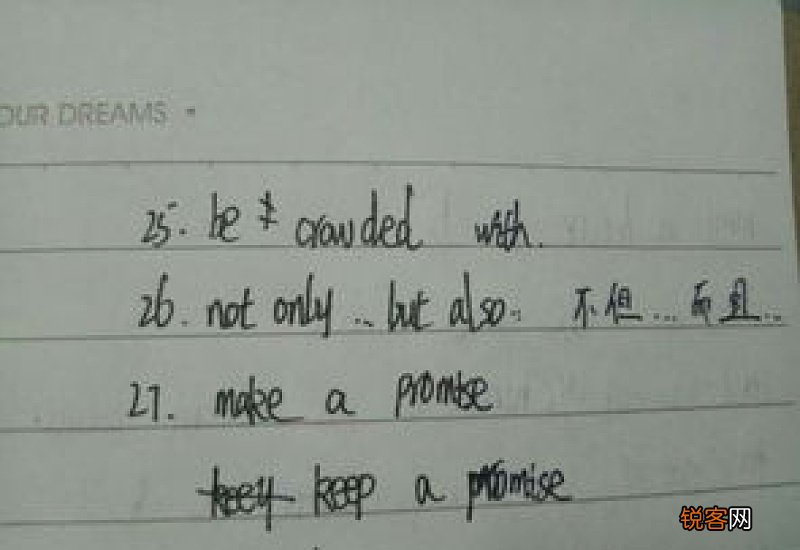 OUR DREAMS
25. be crowded with.
26. not only .. but also.. 不但...而且...
27. make a promise
keep a promise
锐客网